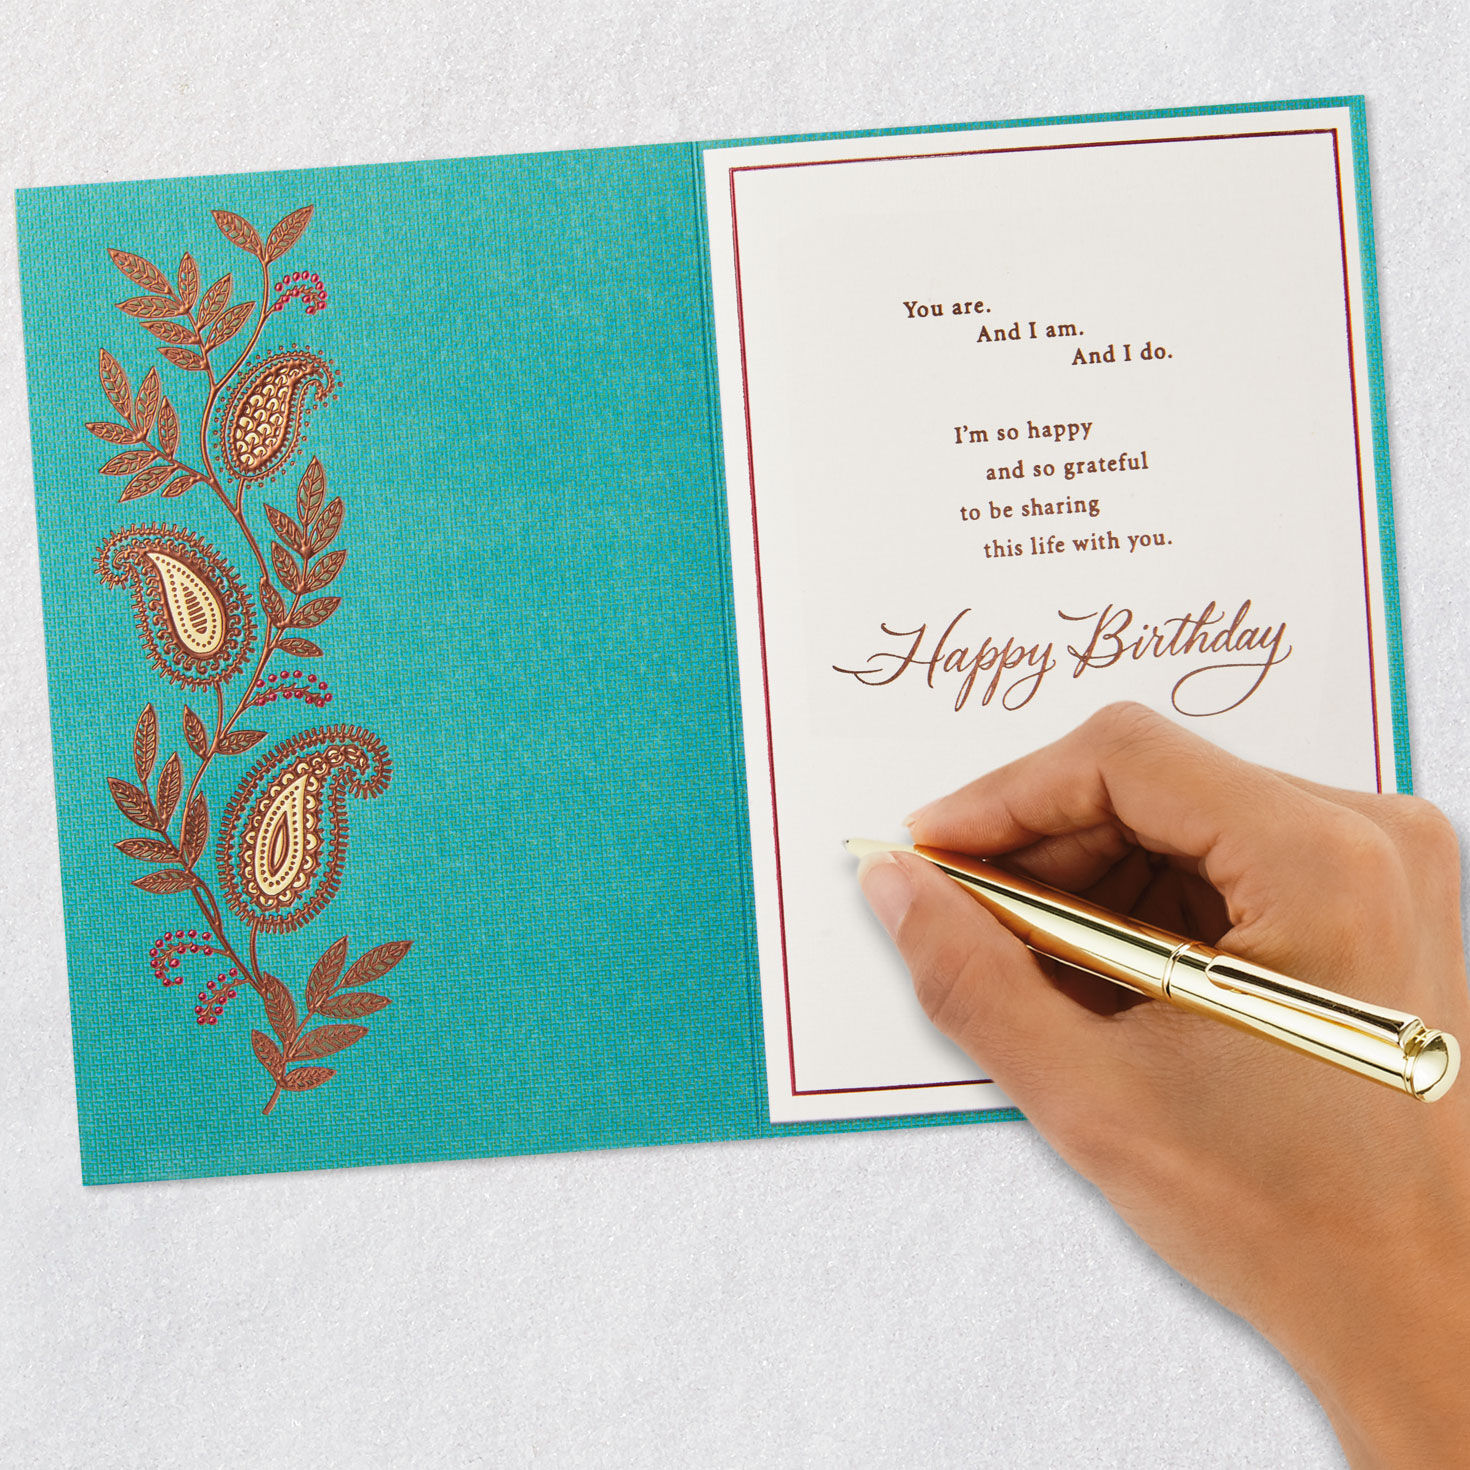 You are.
And I am.
And I do.
I'm so happy
and so grateful
to be sharing
this life with you.
Happy Birthday